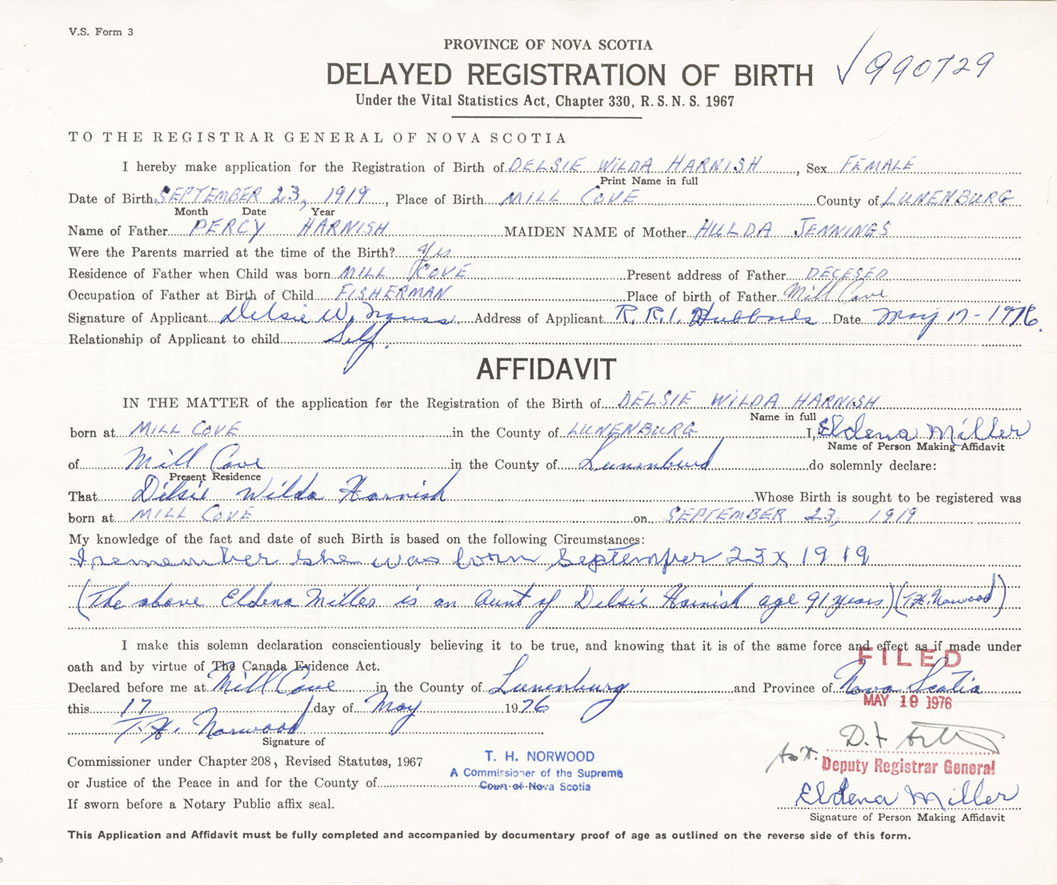 V.S. Form 3
PROVINCE OF NOVA SCOTIA
DELAYED REGISTRATION OF BIRTH √990729
Under the Vital Statistics Act, Chapter 330, R.S.N.S. 1967
TO THE REGISTRAR GENERAL OF NOVA SCOTIA
I hereby make application for the Registration of Birth of DELSIE WILDA HARNISH, Sex FEMALE
Print Name in full
Date of Birth SEPTEMBER 23, 1919, Place of Birth MILL COVE County of LUNENBURG
Month Date Year
Name of Father PERCY HARNISH MAIDEN NAME of Mother HULDA JENNINGS
Were the Parents married at the time of the Birth? Yes
Residence of Father when Child was born MILL COVE Present address of Father DECESED
Occupation of Father at Birth of Child FISHERMAN Place of birth of Father Mill Cove
Signature of Applicant Delsie W. Address of Applicant R.R.1. Hubbards Date May 17-1976.
Relationship of Applicant to child Self.
AFFIDAVIT
IN THE MATTER of the application for the Registration of the Birth of DELSIE WILDA HARNISH
Name in full
born at MILL COVE in the County of LUNENBURG I, Eldena Miller
Name of Person Making Affidavit
of Mill Cove in the County of Lunenburd do solemnly declare:
Present Residence
That Delsie Wilda Harnish Whose Birth is sought to be registered was
born at MILL COVE on SEPTEMBER 23, 1919
My knowledge of the fact and date of such Birth is based on the following Circumstances:
I remember she was born September 23 x 1919
(The above Eldena Miller is an Aunt of Delsie Harnish age 91 years) (T.H. Norwood)
I make this solemn declaration conscientiously believing it to be true, and knowing that it is of the same force and effect as if made under
oath and by virtue of The Canada Evidence Act.
FILED
Declared before me at Mill Cove in the County of Lunenburg and Province of Nova Scotia
MAY 19 1976
this 17 day of May 1976
T.H. Norwood
Signature of
Commissioner under Chapter 208, Revised Statutes, 1967
or Justice of the Peace in and for the County of
If sworn before a Notary Public affix seal.
T. H. NORWOOD
A Commissioner of the Supreme
Court of Nova Scotia
Deputy Registrar General
Eldena Miller
Signature of Person Making Affidavit
This Application and Affidavit must be fully completed and accompanied by documentary proof of age as outlined on the reverse side of this form.